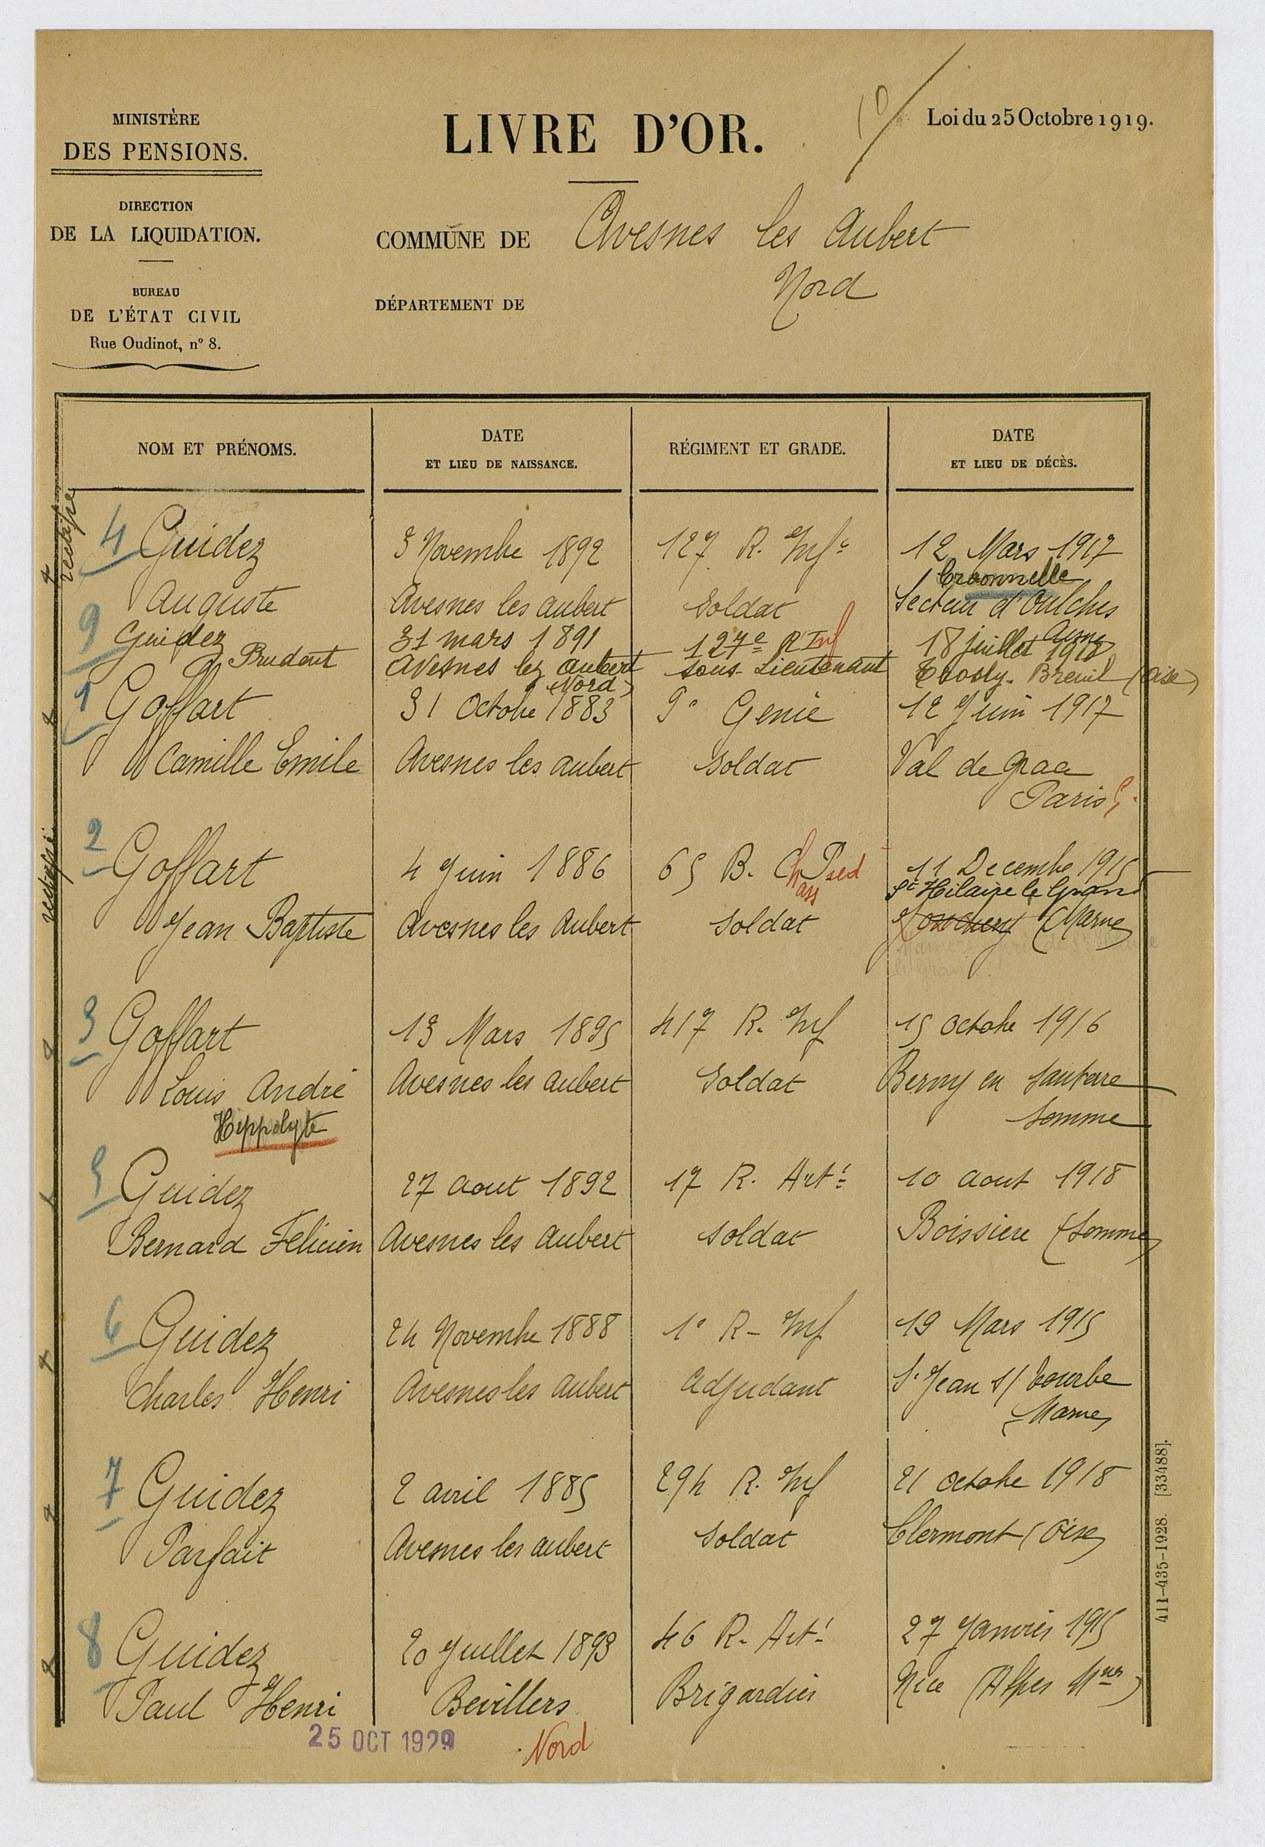 MINISTÈRE
DES PENSIONS.
DIRECTION
DE LA LIQUIDATION.
BUREAU
DE L'ÉTAT CIVIL
Rue Oudinot, nº 8.
LIVRE D'OR.
10
Loi du 25 Octobre 1919.
COMMUNE DE Avesnes les Aubert
DÉPARTEMENT DE Nord
NOM ET PRÉNOMS.
DATE
ET LIEU DE NAISSANCE.
RÉGIMENT ET GRADE.
DATE
ET LIEU DE DÉCÈS.
4 Guidez 3 Novembre 1892 127 R. Infie 12 Mars 1917
Craonnelle
Auguste Avesnes les Aubert Soldat Secteur d'Oulches
Aisne
9 Guidez 31 mars 1891 127e R Inf 18 juillet 1918
Prudent Avesnes lez Aubert sous-Lieutenant Trosly-Breuil (Oise)
(Nord)
1 Goffart 31 Octobre 1883 9e Génie 12 Juin 1917
Camille Emile Avesnes les Aubert Soldat Val de Grace
Paris 5.
2 Goffart 4 Juin 1886 65 B. Chass Pied 11 Decembre 1915
St Hilaire le Grand
Jean Baptiste Avesnes les Aubert Soldat (Marne)
3 Goffart 13 Mars 1895 417 R. Inf 15 Octobre 1916
Louis André Avesnes les Aubert Soldat Berny en Santerre
Hippolyte Somme
5 Guidez 27 Aout 1892 17 R. Artie 10 Aout 1918
Bernard Felicien Avesnes les Aubert Soldat Boissiere (Somme)
6 Guidez 24 Novembre 1888 1e R- Inf 19 Mars 1915
Charles Henri Avesnes les Aubert Adjudant St Jean s/ Tourbe
(Marne)
7 Guidez 2 avril 1885 294 R. Inf 21 Octobre 1918
Parfait Avesnes les Aubert Soldat Clermont (Oise)
8 Guidez 20 Juillet 1893 46 R. Artie 27 Janvier 1915
Paul Henri Bevillers Brigardier Nice (Alpes Mmes)
Nord
25 OCT 1929
411-435-1928. [33488].